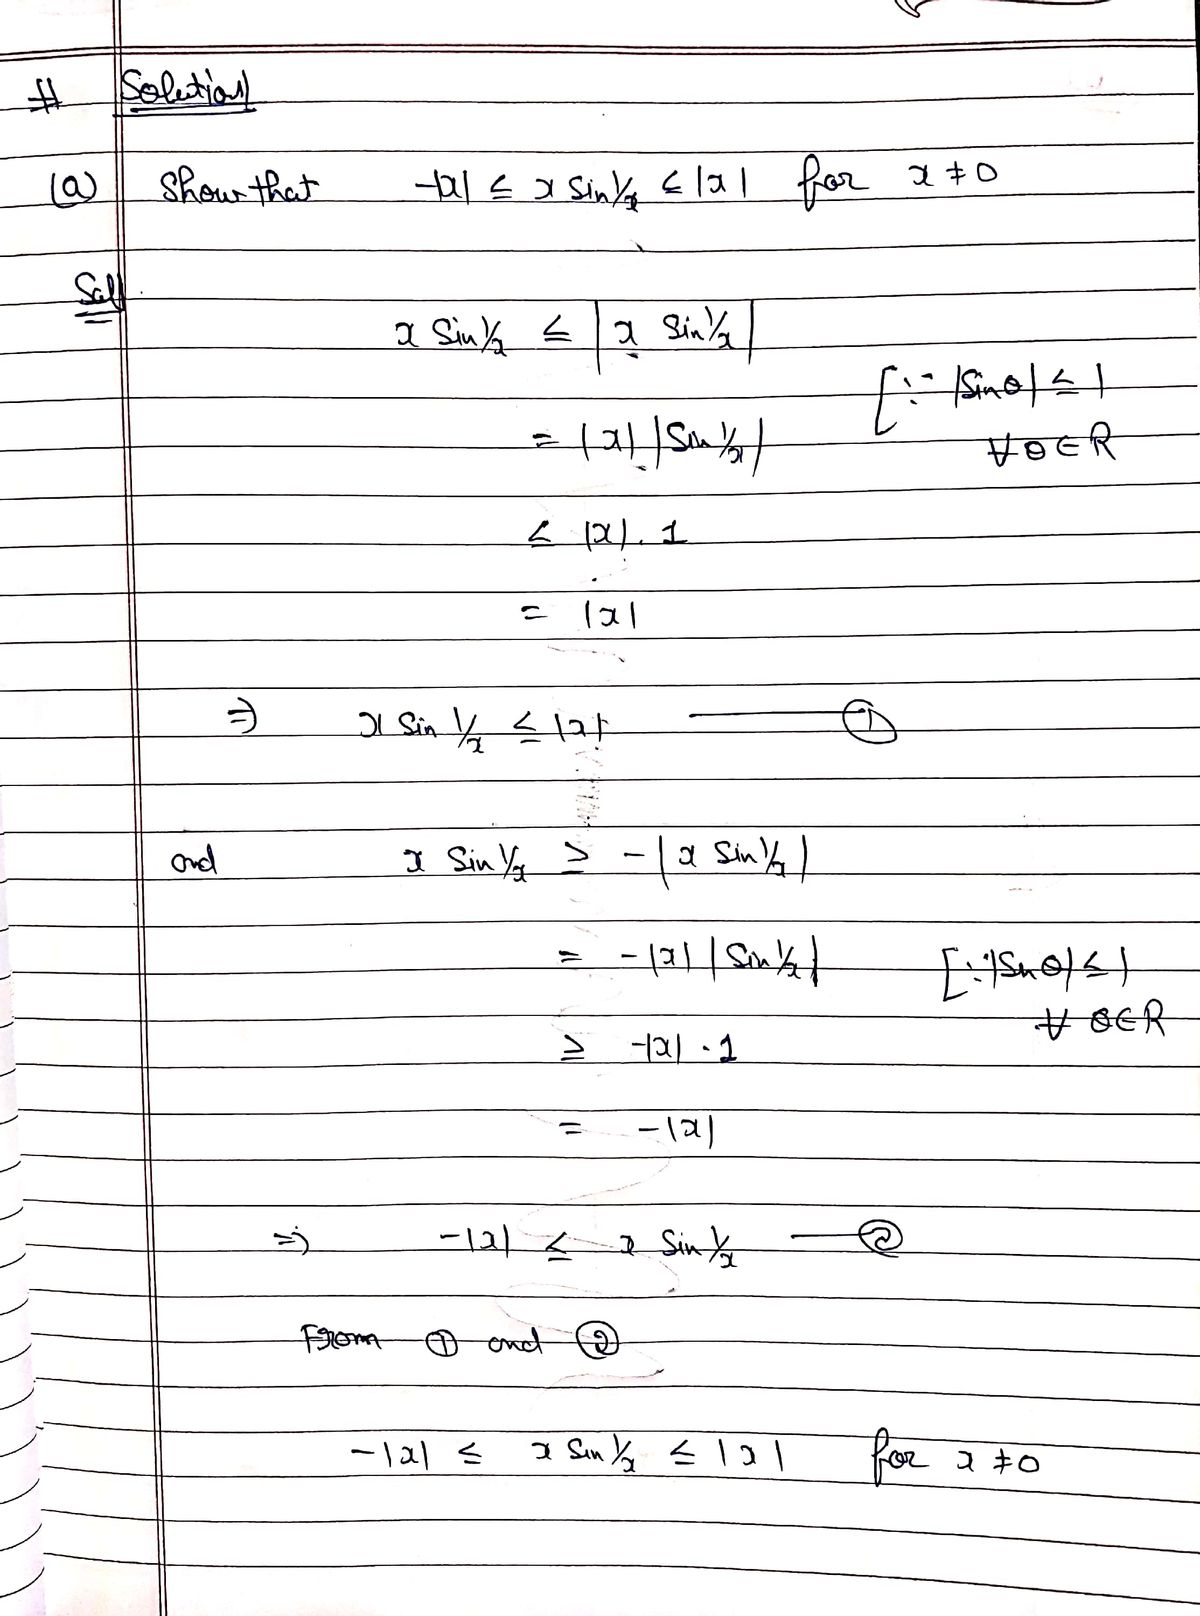 # Solution
(a) Show that -|x| ≤ x Sin 1/x ≤ |x| for x ≠ 0
Sol
x Sin 1/x ≤ |x Sin 1/x|
[∵ |Sin θ| ≤ 1
= |x| |Sin 1/x|
∀ θ ∈ R
≤ |x| . 1
= |x|
⇒ x Sin 1/x ≤ |x| —— ①
and x Sin 1/x ≥ - |x Sin 1/x|
= - |x| |Sin 1/x| [∵ |Sin θ| ≤ 1
∀ θ ∈ R
≥ -|x| . 1
= -|x|
⇒ -|x| ≤ x Sin 1/x —— ②
From ① and ②
-|x| ≤ x Sin 1/x ≤ |x| for x ≠ 0